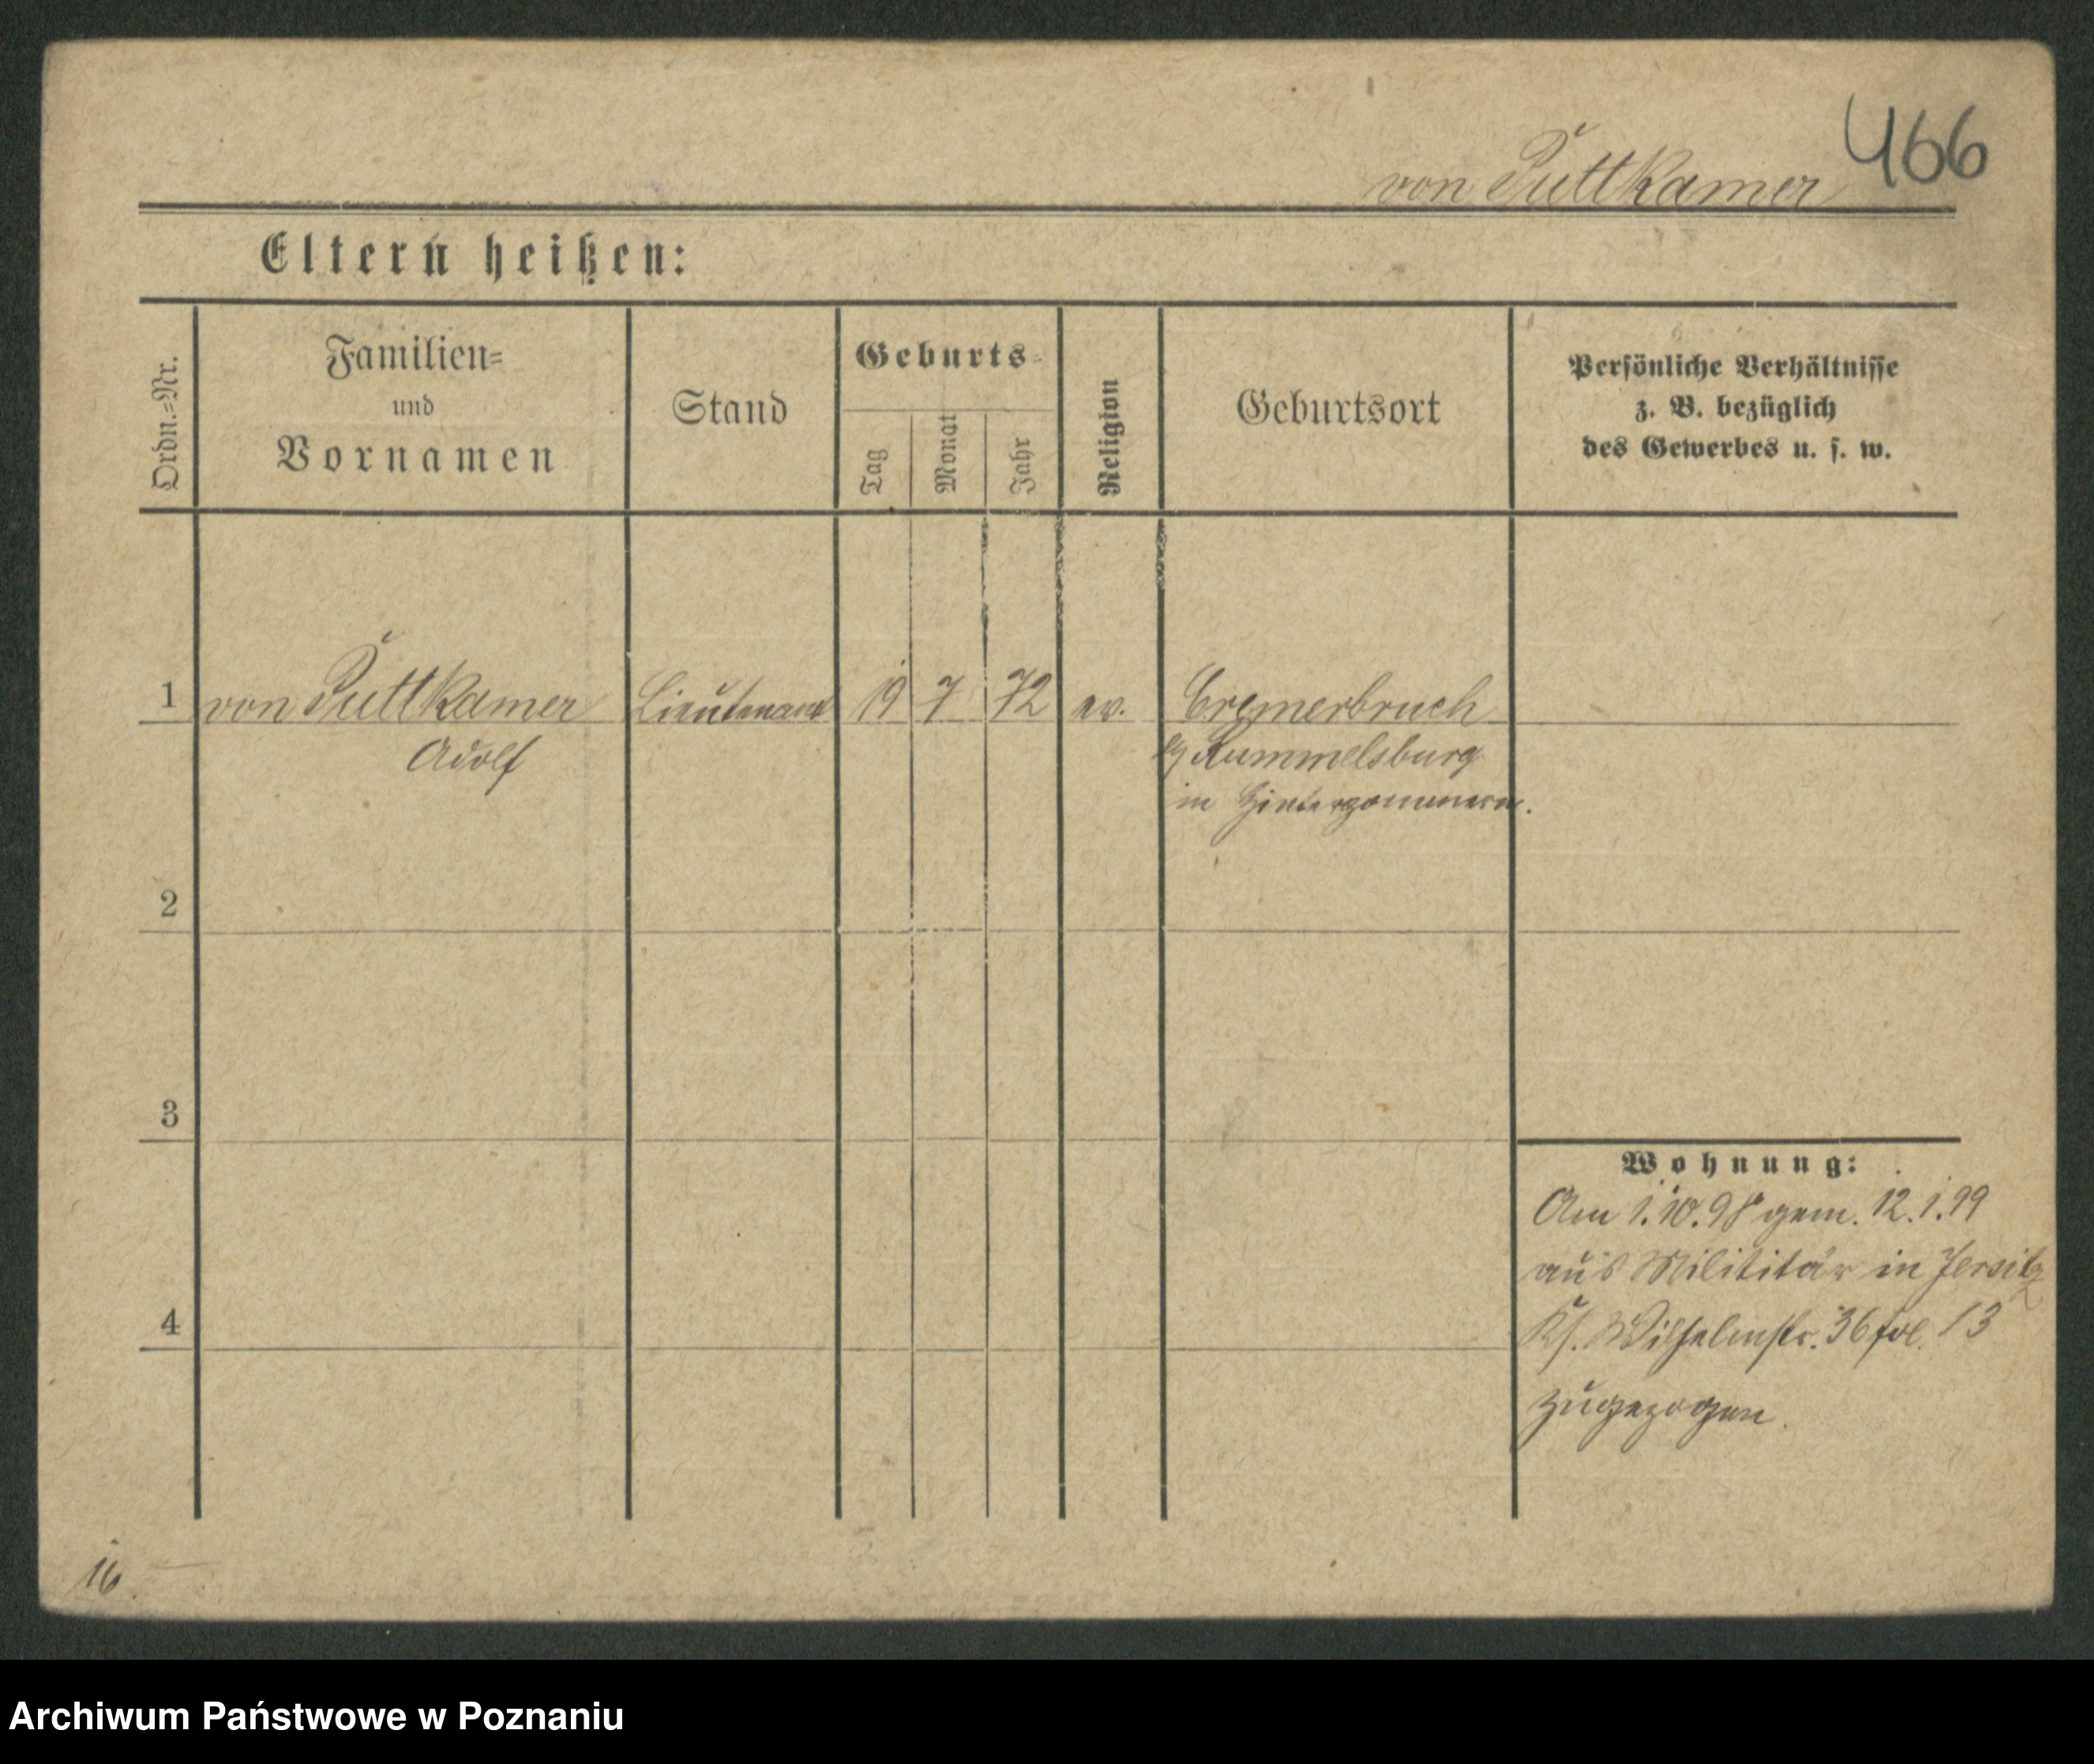 466
von Puttkamer
Eltern heißen:
Ordn.=Nr.
Familien=
und
Vornamen
Stand
Geburts=
Tag
Monat
Jahr
Religion
Geburtsort
Persönliche Verhältnisse
z. B. bezüglich
des Gewerbes u. s. w.
1 von Puttkamer Lieutenant 19 7 72 ev. Cremerbruch
Adolf Rummelsburg
in Hinterpommern.
2
3
Wohnung:
Am 1.10.98 gem. 12.1.99
aus Milititär in Jersitz
4
Ks. Wilhelmstr. 36 fol. 13
zugezogen.
16
Archiwum Państwowe w Poznaniu